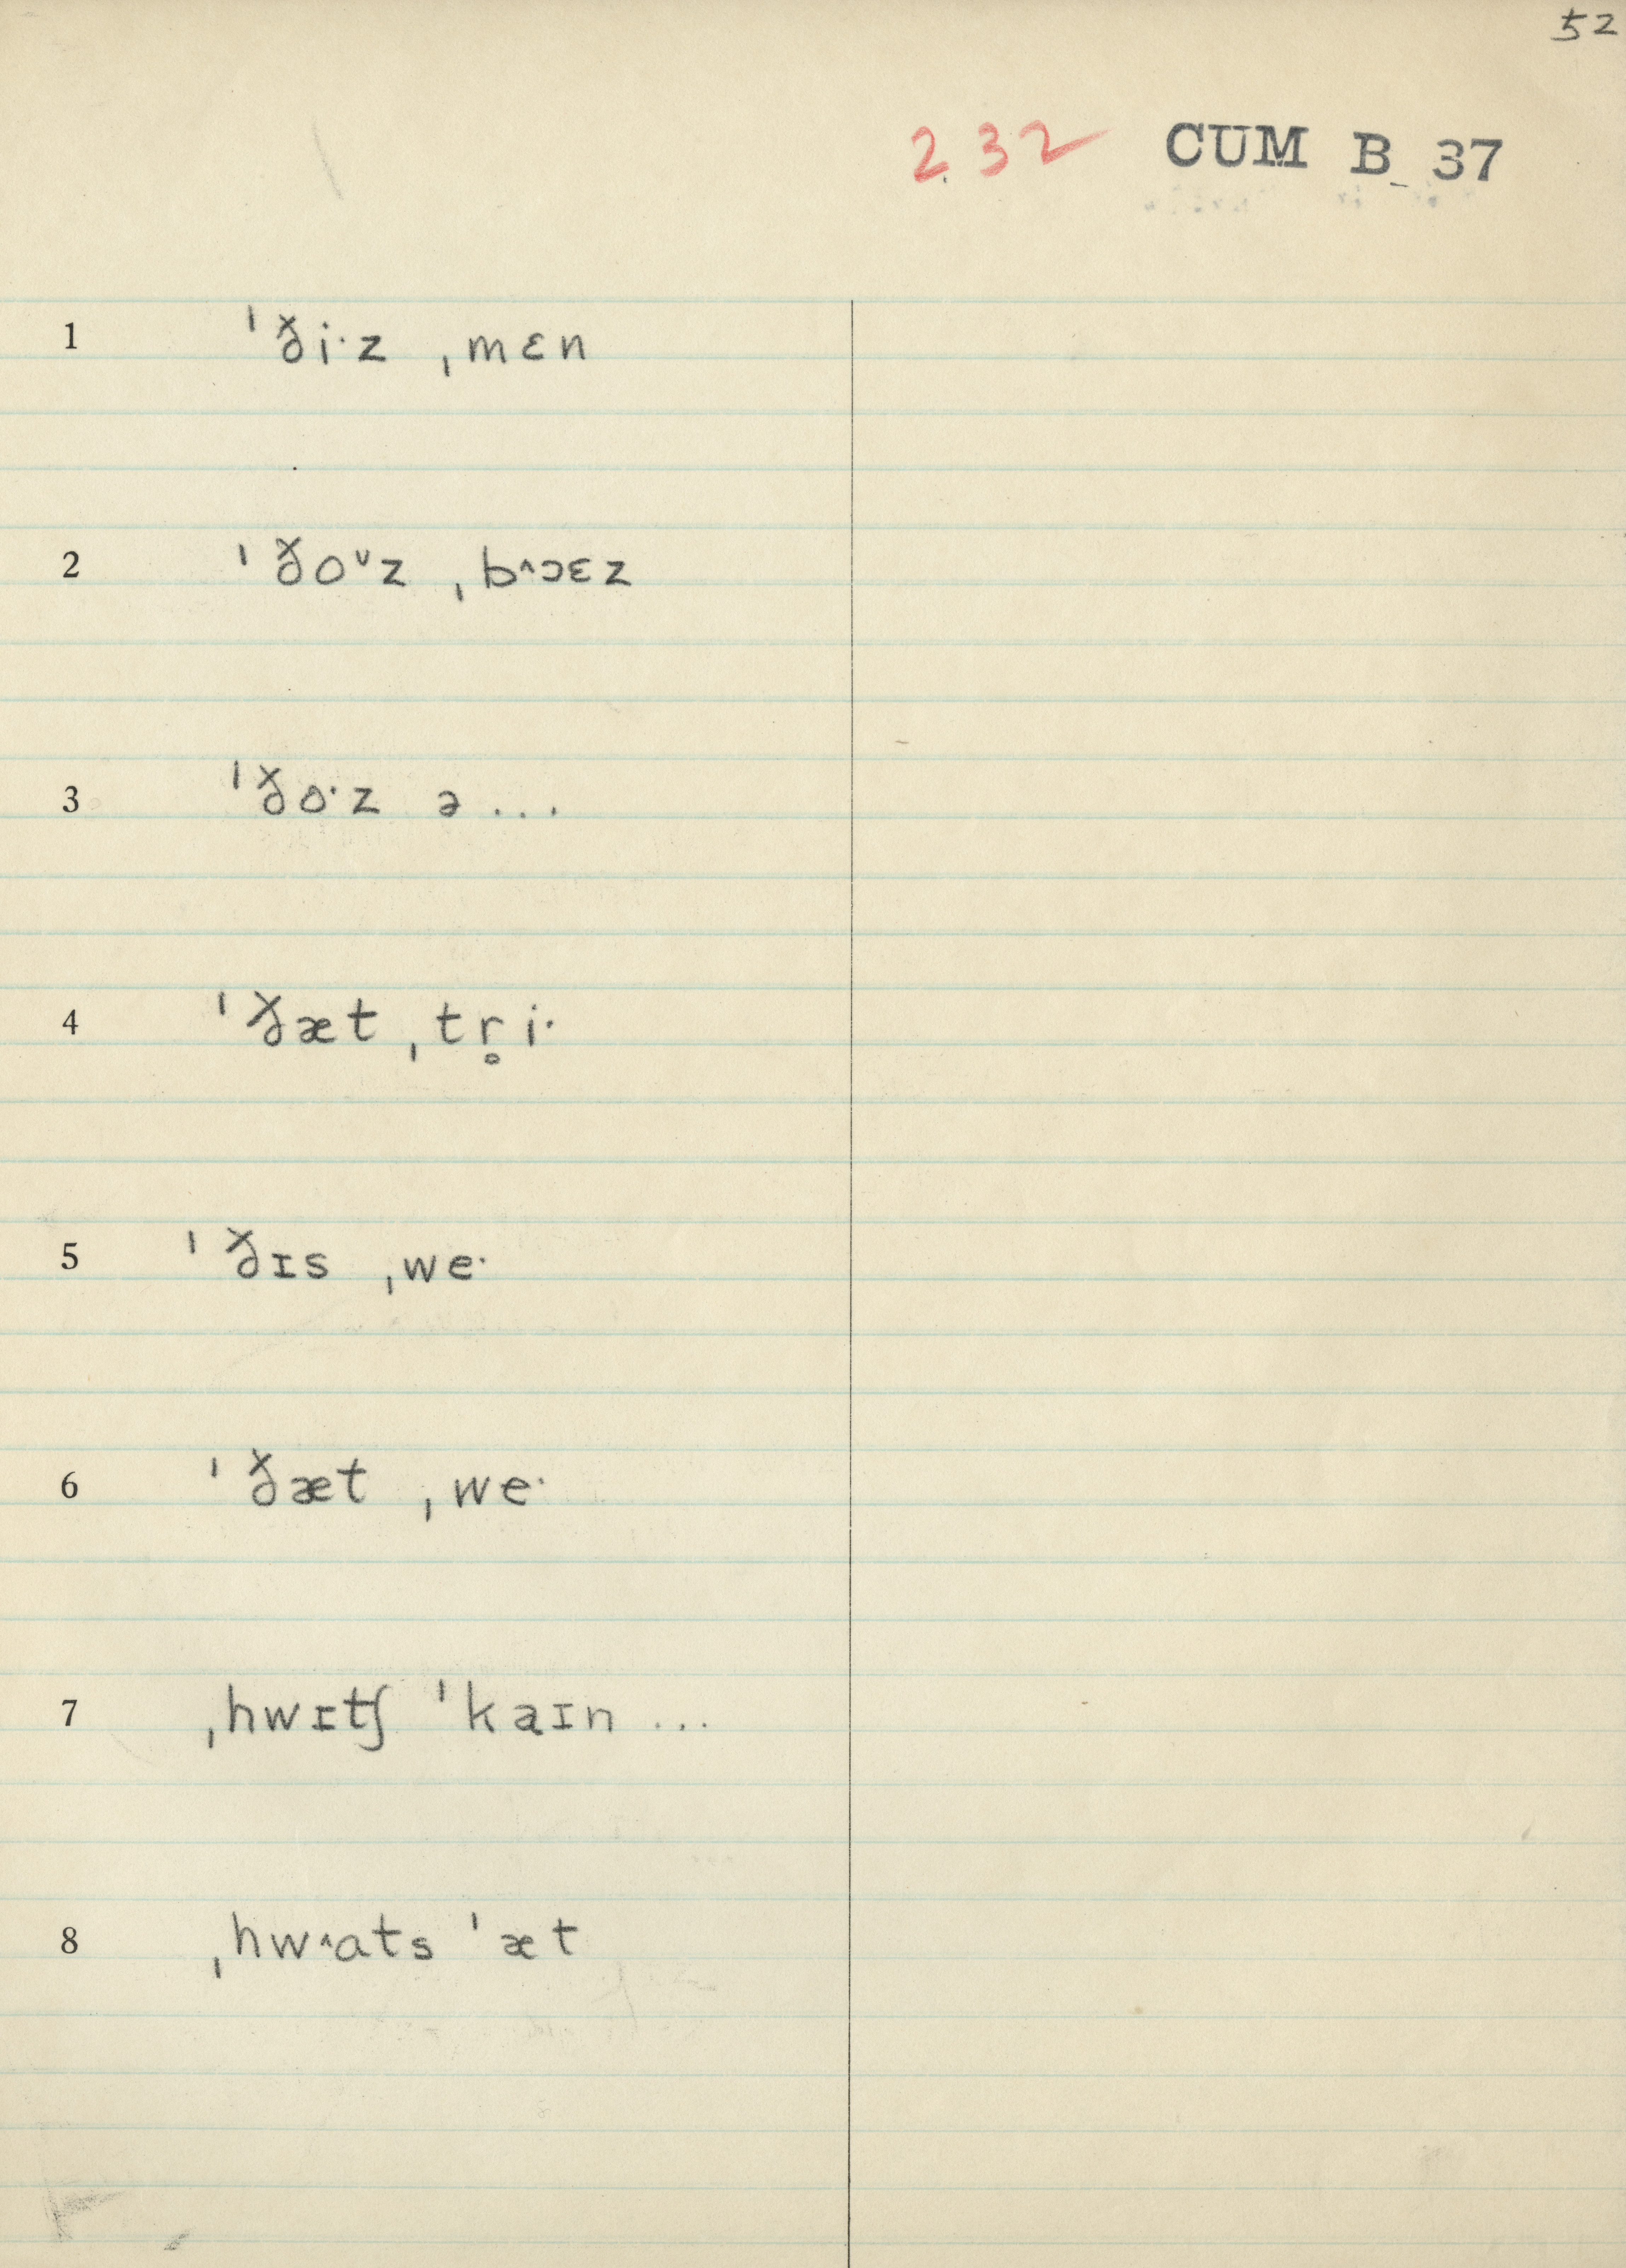 52
232 CUM B 37
1 ˈði·z ˌmɛn
2 ˈðoᵛz ˌb^ɔɛz
3 ˈðo·z ə ...
4 ˈðæt ˌtr̥i·
5 ˈðɪs ˌwe·
6 ˈðæt ˌwe·
7 ˌhwɪtʃ ˈkaɪn ...
8 ˌhw^ats ˈæt